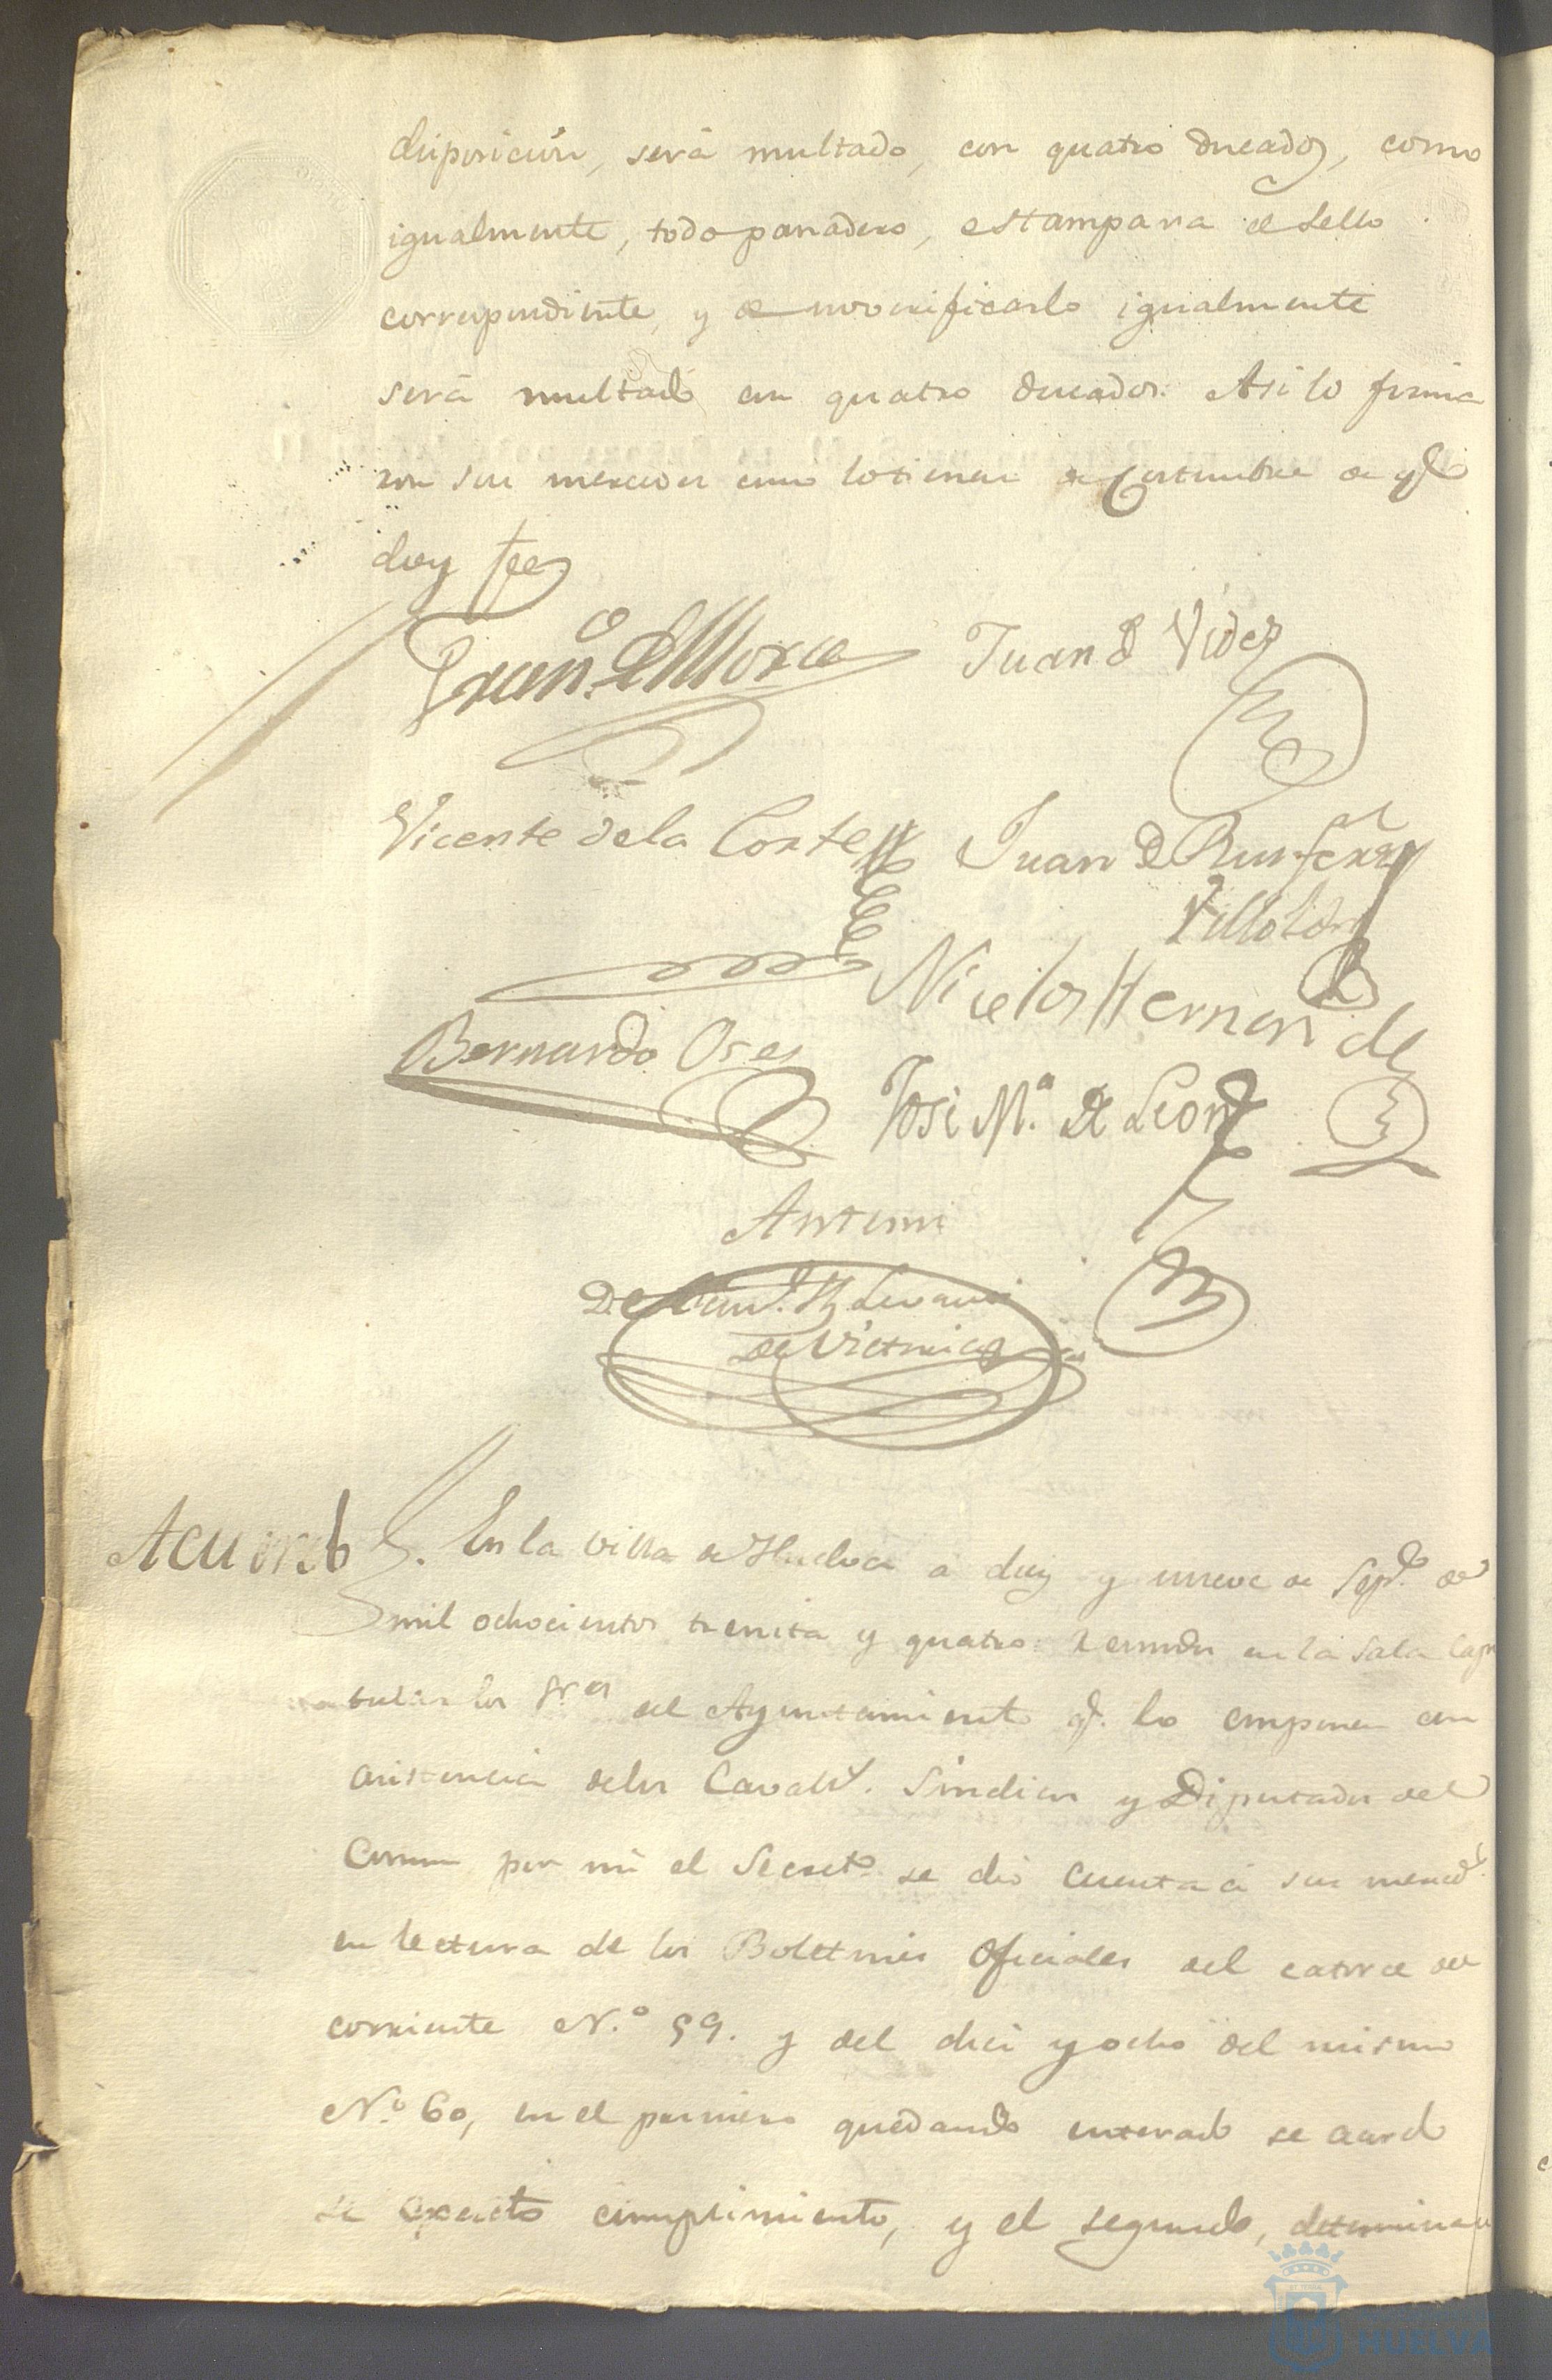 disposicion, será multado, con quatro ducados, como
igualmente, todo panadero, estampara el sello
correspondiente, y de no verificarlo igualmente
será multado en quatro ducados. Asi lo firma
ron sus mercedes como lo tienen de Costumbre de qe
doy fee
Franco. de Mora Juan de Vides
Vicente de la Corte Juan de Ruifernz
Villoldo
Nicolas Hernandez
Bernardo Oses
Jose Ma. de Leon
Ante mi
de Victoria
Acuerdo En la Villa de Huelva a diez y nueve de Sepe. de
mil ochocientos treinta y quatro: Reunidos en la Sala Capi
tular los Sres del Ayuntamiento q. lo componen con
asistencia de los Cavalls. Sindicos y Diputados del
Comun por mi el Secreto. se dió cuenta á sus merceds.
en lectura de los Boletines Oficiales del catorce del
corriente N.o 59. y del diez y ocho del mismo
N.o 60, en el primero quedando enterado se acordo
su exacto cumplimiento, y el segundo, determinan
HUELVA